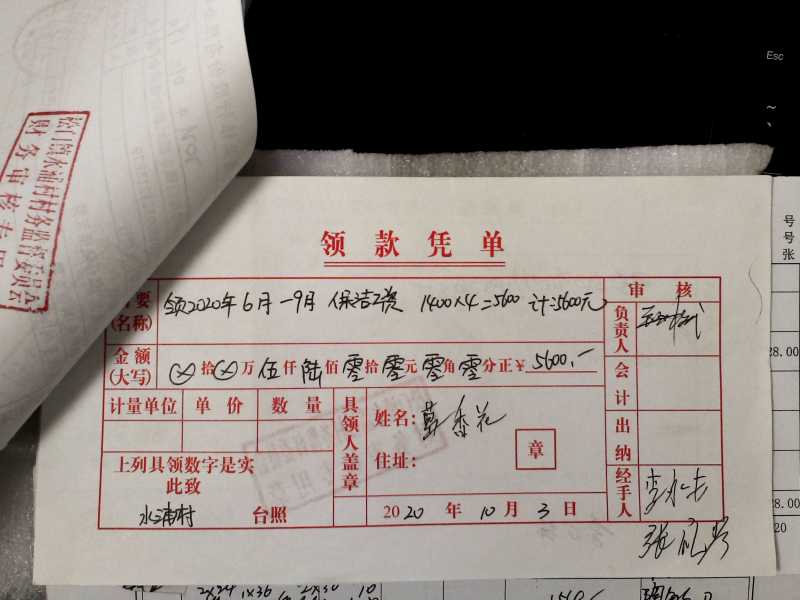 松门镇水浦村村务监督委员会
财务审核专用
Esc
~
号
号
张
领款凭单
要 领2020年6月-9月 保洁工资 1400×4=5600 计:5600元
(名称)
审核
负责人
金额
(大写)
⊗拾⊗万伍仟陆佰零拾零元零角零分正¥5600.-
28.00
会计
计量单位 单价 数量
具领人盖章
姓名: 香花
住址:
章
出纳
上列具领数字是实
此致
水浦村 台照
2020年10月3日
经手人
28.00
20